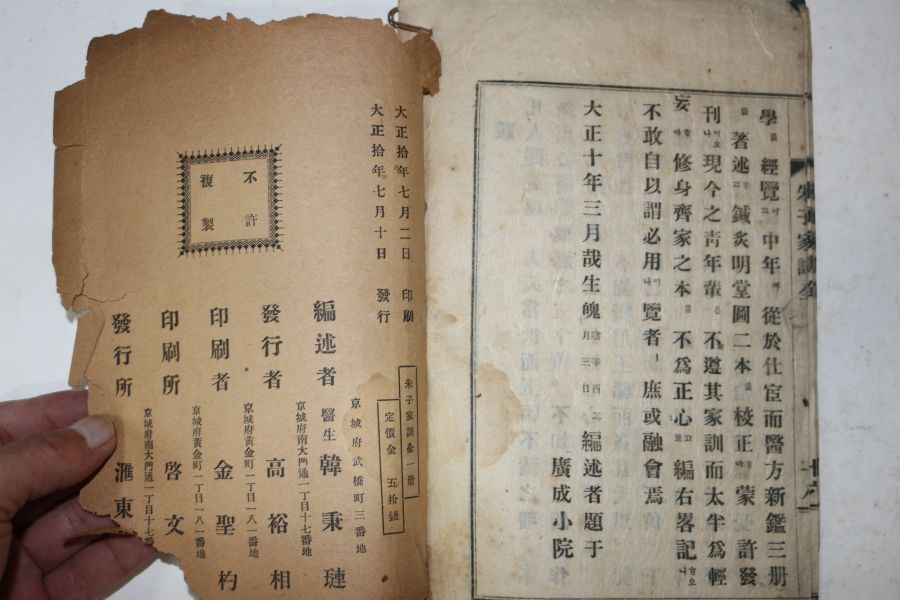 朱子家訓全
學을 經覽이고 中年에 從於仕宦而醫方新鑑三册
을 著述하고 鍼灸明堂圖二本을 校正하야 蒙許發
刊이오나 現今之靑年輩은 不遵其家訓而太半爲輕
妄하야 修身齊家之本을 不爲正心고로 編右畧記하오니
不敢自以謂必用이나 覽者ㅣ 庶或融會焉
大正十年三月哉生魄 陰辛酉二月三日 編述者題于
廣成小院
大正拾年七月二日 印刷
大正拾年七月十日 發行
朱子家訓全一册
定價金 五拾錢
不許複製
京城府武橋町三番地
編述者 醫生 韓秉璉
京城府南大門通一丁目十七番地
發行者 高裕相
京城府黃金町一丁目一八一番地
印刷者 金聖杓
京城府黃金町一丁目一八一番地
印刷所 啓文
京城府南大門通一丁目十七番地
發行所 滙東